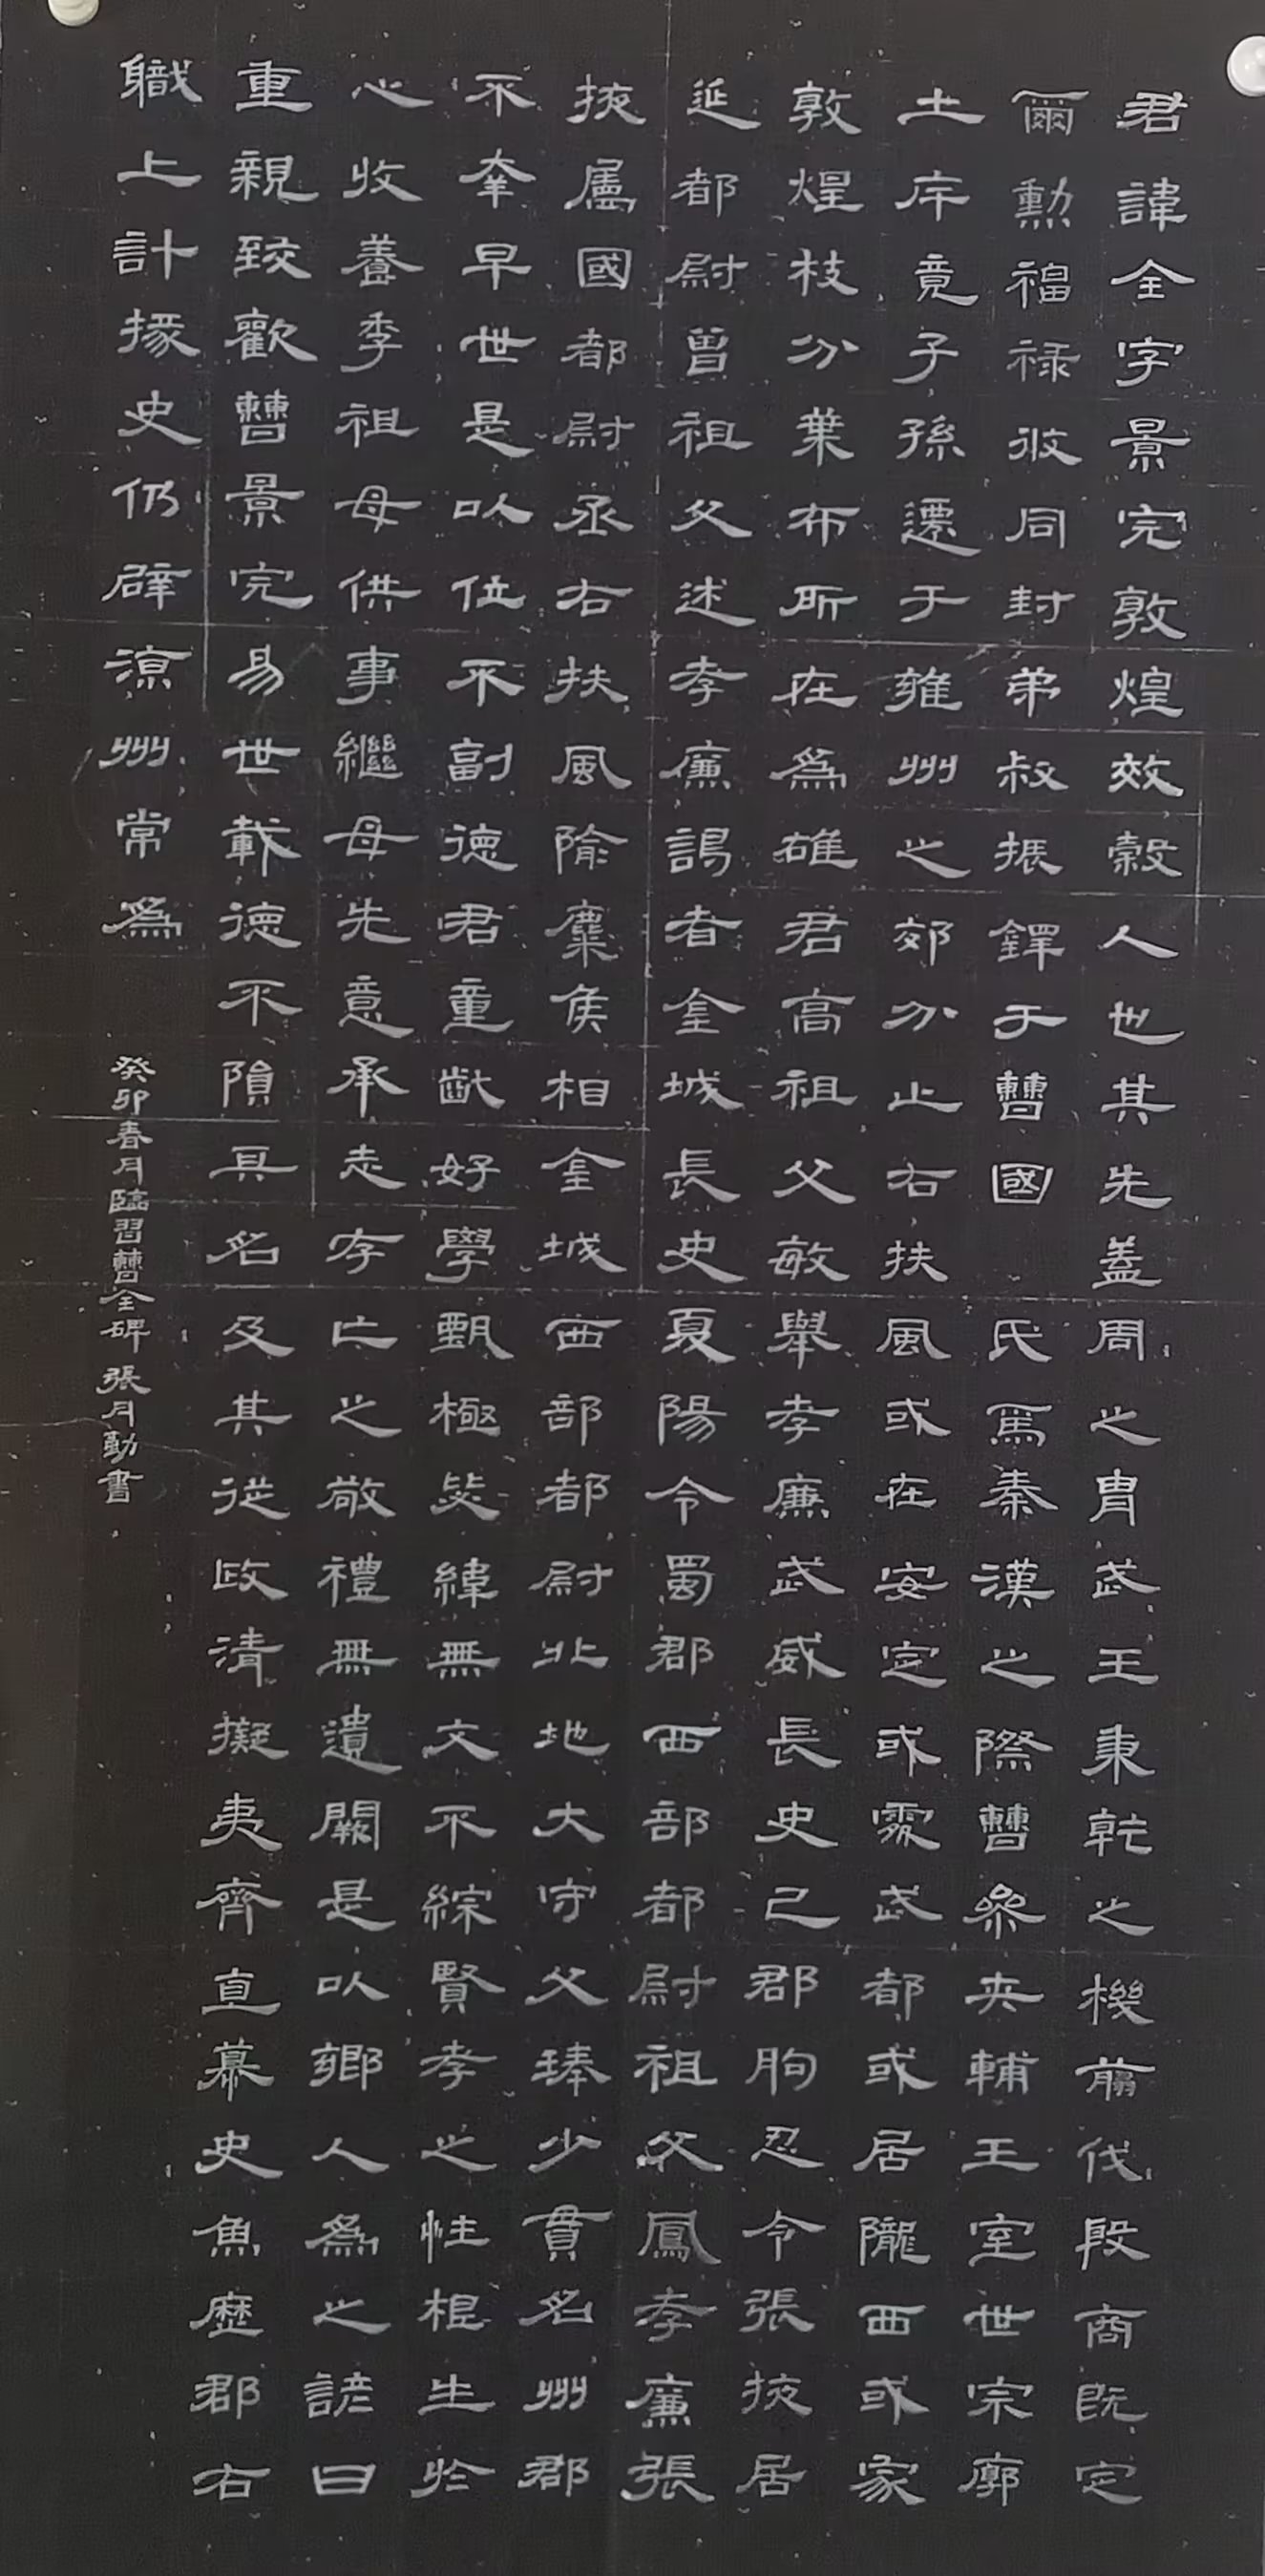 君諱全字景完敦煌效穀人也其先蓋周之胄武王秉乾之機翦伐殷商既定
爾勳福祿攸同封弟叔振鐸于曹國 氏焉秦漢之際曹參夾輔王室世宗廓
土斥竟子孫遷于雍州之郊分止右扶風或在安定或處武都或居隴西或家
敦煌枝分葉布所在為雄君高祖父敏舉孝廉武威長史巳郡朐忍令張掖居
延都尉曾祖父述孝廉謁者金城長史夏陽令蜀郡西部都尉祖父鳳孝廉張
掖屬國都尉丞右扶風隃麋侯相金城西部都尉北地大守父琫少貫名州郡
不幸早世是以位不副德君童齔好學甄極毖緯無文不綜賢孝之性根生於
心收養季祖母供事繼母先意承志存亡之敬禮無遺闕是以鄉人為之諺曰
重親致歡曹景完易世載德不隕其名及其從政清擬夷齊直慕史魚歷郡右
職上計掾史仍辟涼州常為
癸卯春月臨習曹全碑張月動書